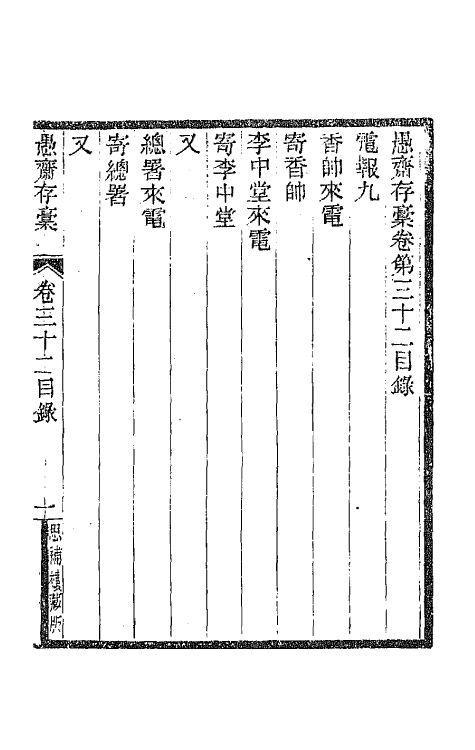 愚齋存稾卷第三十二目錄
電報九
香帥來電
寄香帥
李中堂來電
寄李中堂
又
總署來電
寄總署
又
愚齋存稾
卷三十二目錄
一
思補樓藏版